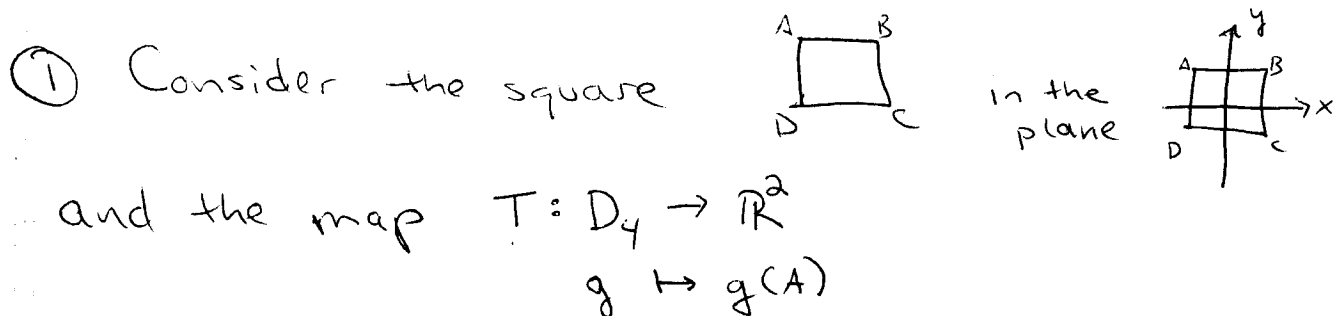 A B
① Consider the square D C in the plane A B D C x y
and the map T: D₄ → ℝ²
g ↦ g(A)